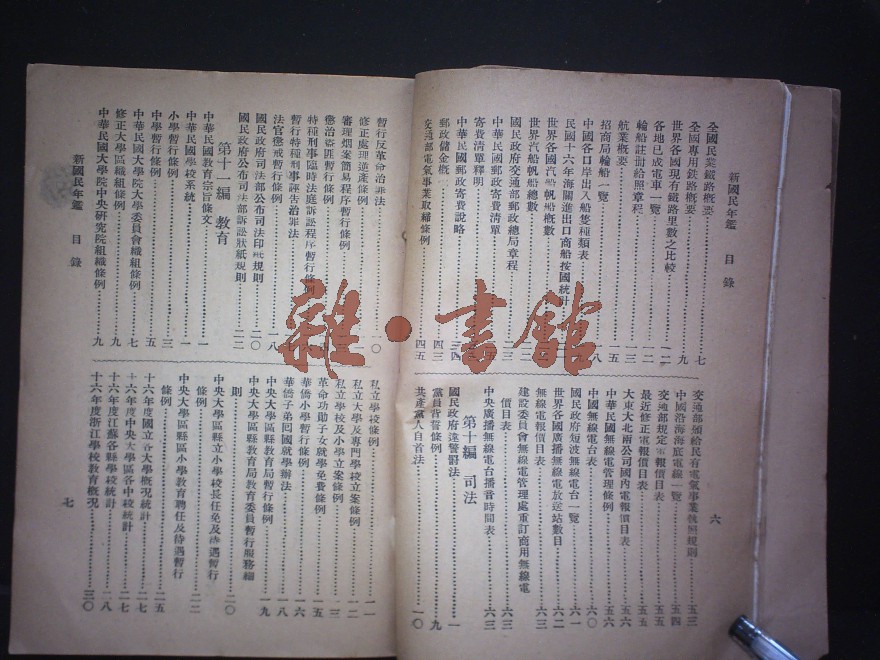 新國民年鑑 目錄
六
全國民業鐵路概要……七
全國專用鉄路概要……九
世界各國現有鐵路里數之比較
各地已成電車一覽
輪船註冊給照章程
航業概要
招商局輪船一覽
中國各口岸出入船隻種類表
民國十六年海關進出口商船按國統計
世界各國汽船帆船概數
世界汽船帆船總數
國民政府交通部郵政總局章程
中華民國郵政寄費清單
寄費清單釋明
中華民國郵政寄費說略
郵政儲金概要……四三
交通部電氣事業取締條例……四五
交通部頒給民有電氣事業執照規則……五三
中國沿海海底電線一覽……五四
交通部規定電報價目表……五五
最近修正電報價目表……五五
大東大北兩公司國內電報價目表……五六
中華民國無線電管理條例……五六
中國無線電台表……六〇
國民政府短波無線電台一覽……六一
世界各國廣播無線電放送站數目……六二
無線電報價目表……六三
建設委員會無線電管理處重訂商用無線電
價目表……六三
中央廣播無線電台播音時間表……六三
第十編 司法
國民政府違警罰法……一
黨員背誓條例……九
共產黨人自首法……一〇
暫行反革命治罪法……一〇
修正處理逆產條例
審理烟案簡易程序暫行條例
懲治盜匪暫行條例
特種刑事臨時法庭訴訟程序暫行條例
暫行特種刑事誣告治罪法
法官懲戒暫行條例……一八
國民政府司法部公布司法印紙規則……二〇
國民政府公布司法部訴訟狀紙規則……二二
第十一編 教育
中華民國教育宗旨條文……一
中華民國學校系統……一
小學暫行條例……三
中學暫行條例……五
中華民國大學院大學委員會組織條例……七
修正大學區組織條例……九
中華民國大學院中央研究院組織條例……九
新國民年鑑 目錄
私立學校條例……一一
私立大學及專門學校立案條例……一二
私立學校及小學立案條例……一三
革命功勛子女就學免費條例……一五
華僑小學暫行條例……一六
華僑子弟囘國就學辦法……一八
中央大學區縣教育局暫行條例……一九
中央大學區縣教育局教育委員暫行服務細
則……二〇
中央大學區縣立小學校長任免及待遇暫行
條例……二二
中央大學區縣區小學教育聘任及待遇暫行
條例……二五
十六年度國立各大學概況統計……二七
十六年度中央大學區各中校統計……二七
十六年度江蘇各縣學校統計……二八
十六年度浙江學校教育概况……三〇
七
雜·書館